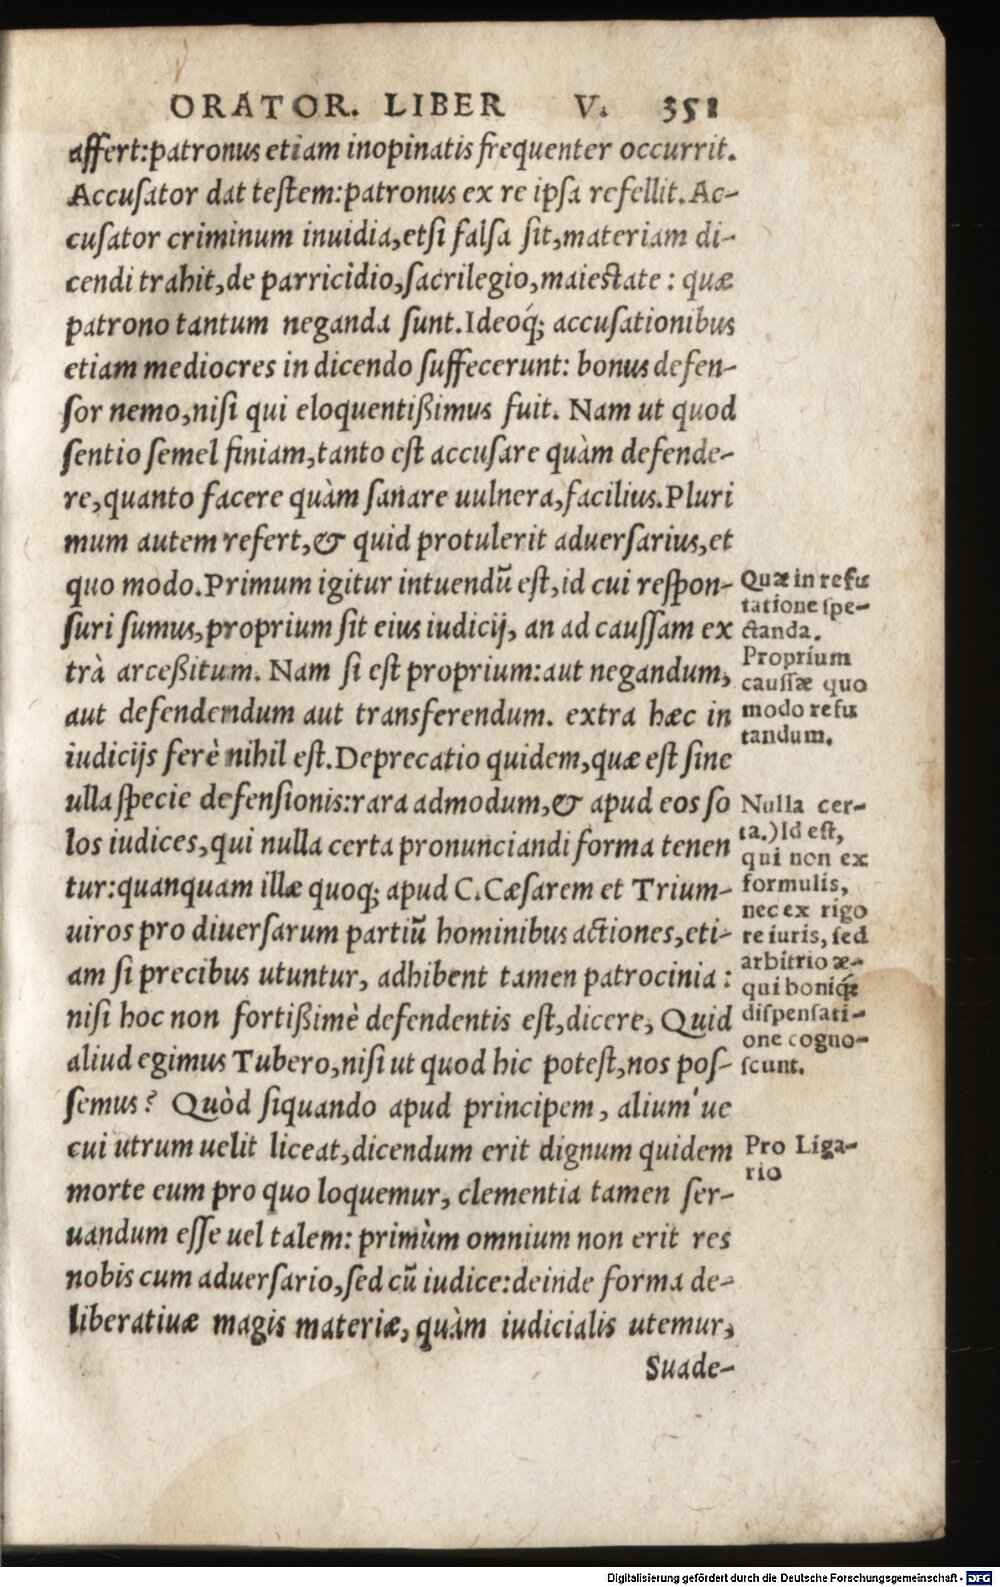 ORATOR. LIBER V. 351
affert:patronus etiam inopinatis frequenter occurrit.
Accusator dat testem:patronus ex re ipsa refellit.Ac-
cusator criminum inuidia,etsi falsa sit,materiam di-
cendi trahit,de parricidio,sacrilegio,maiestate: quæ
patrono tantum neganda sunt.Ideoq́; accusationibus
etiam mediocres in dicendo suffecerunt: bonus defen-
sor nemo,nisi qui eloquentißimus fuit. Nam ut quod
sentio semel finiam,tanto est accusare quàm defende-
re,quanto facere quàm sanare uulnera,facilius.Pluri
mum autem refert,& quid protulerit aduersarius,et
quo modo.Primum igitur intuendũ est,id cui respon-
suri sumus,proprium sit eius iudicij, an ad caussam ex
trà arceßitum. Nam si est proprium:aut negandum,
aut defendendum aut transferendum. extra hæc in
iudicijs ferè nihil est.Deprecatio quidem,quæ est sine
ulla specie defensionis:rara admodum,& apud eos so
los iudices,qui nulla certa pronunciandi forma tenen
tur:quanquam illæ quoq; apud C.Cæsarem et Trium-
uiros pro diuersarum partiũ hominibus actiones,eti-
am si precibus utuntur, adhibent tamen patrocinia:
nisi hoc non fortißimè defendentis est,dicere, Quid
aliud egimus Tubero,nisi ut quod hic potest,nos pos-
semus? Quòd siquando apud principem, alium'ue
cui utrum uelit liceat,dicendum erit dignum quidem
morte eum pro quo loquemur, clementia tamen ser-
uandum esse uel talem: primùm omnium non erit res
nobis cum aduersario,sed cũ iudice:deinde forma de-
liberatiuæ magis materiæ,quàm iudicialis utemur,
Suade-
Quæ in refu
tatione spe-
ctanda.
Proprium
caussæ quo
modo refu
tandum.
Nulla cer-
ta.)Id est,
qui non ex
formulis,
nec ex rigo
re iuris, sed
arbitrio æ-
qui boniq́;
dispensati-
one cogno-
scunt.
Pro Liga-
rio
Digitalisierung gefördert durch die Deutsche Forschungsgemeinschaft - DFG